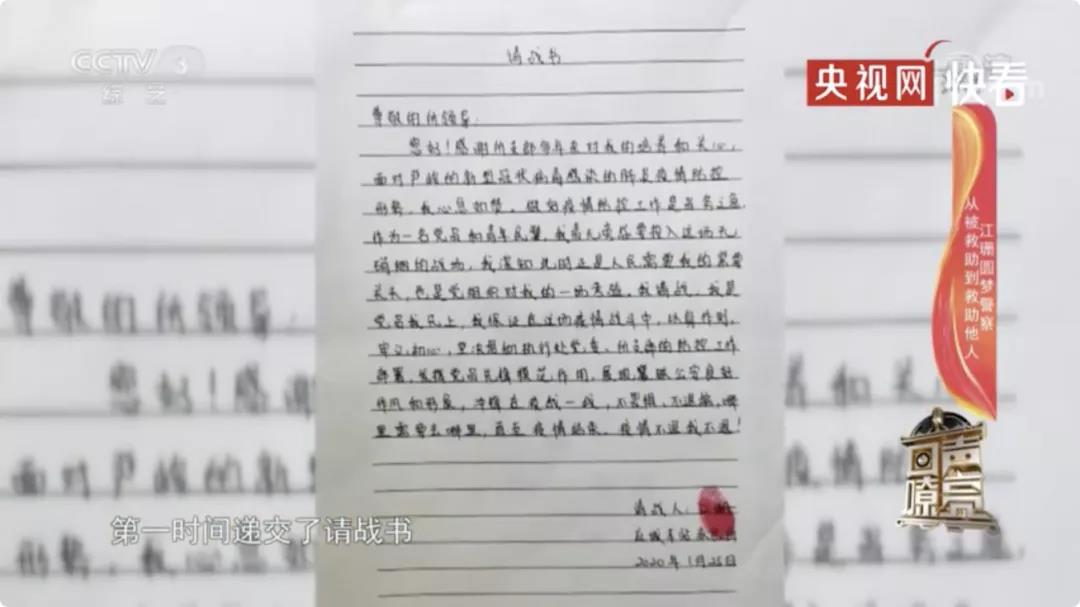 CCTV 3
综艺
央视网 快看
江珊圆梦警察
从被救助到救助他人
请战书
尊敬的所领导:
您好!感谢所支部多年来对我的培养和关心,
面对严峻的新型冠状病毒感染的肺炎疫情防控
形势,我心急如焚。做好疫情防控工作是当务之急,
作为一名党员和青年民警,我责无旁贷要投入这场无
硝烟的战场,我深知此时正是人民需要我的紧要
关头,也是党组织对我的一场考验。我请战,我是
党员我先上,我保证在这场疫情战斗中,以身作则,
牢记初心,坚决贯彻执行处党委、所支部的防控工作
部署,发挥党员先锋模范作用,展现襄铁公安良好
作风和形象,冲锋在疫战一线,不畏惧、不退缩,哪
里需要去哪里,直至疫情结束。疫情不退我不退!
请战人:
2020年1月25日
尊敬的所领导:
您好!感谢
面对严峻的新
形势,我心急
养和关心,
疫情防控
是当务之急
第一时间递交了请战书